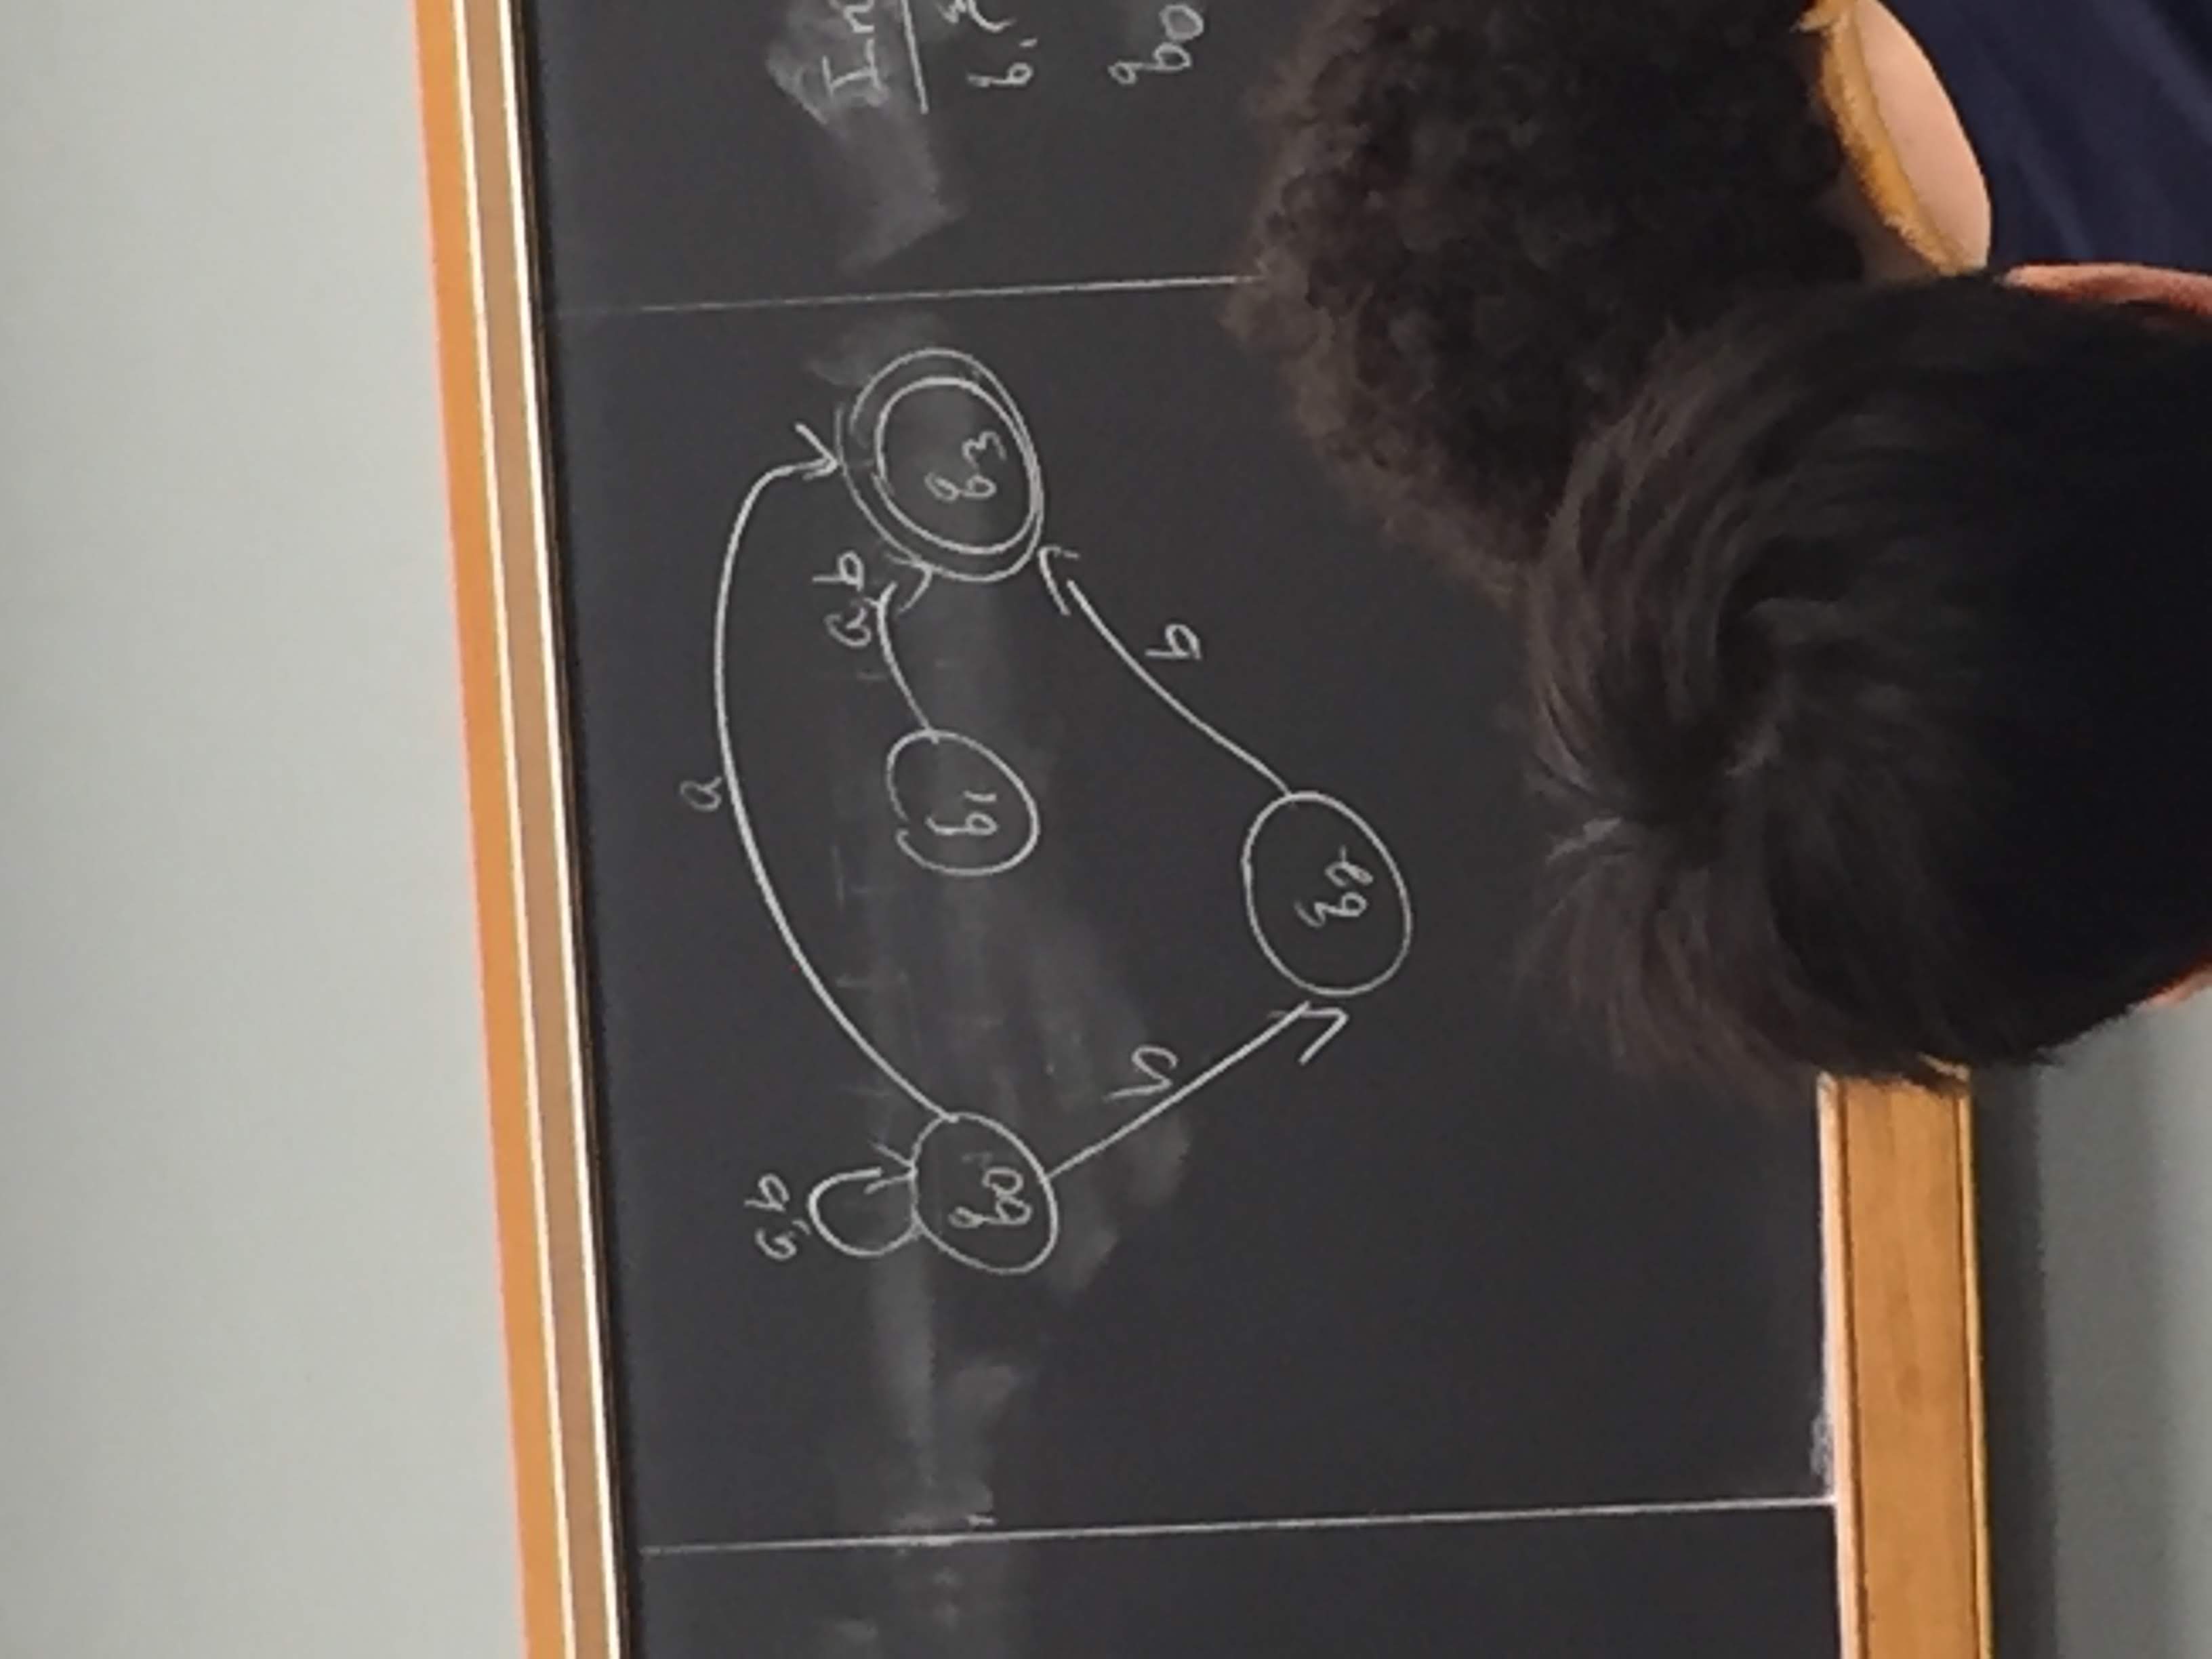 a
a,b
a,b
q0
q1
q3
b
b
q2
In
q1
q0